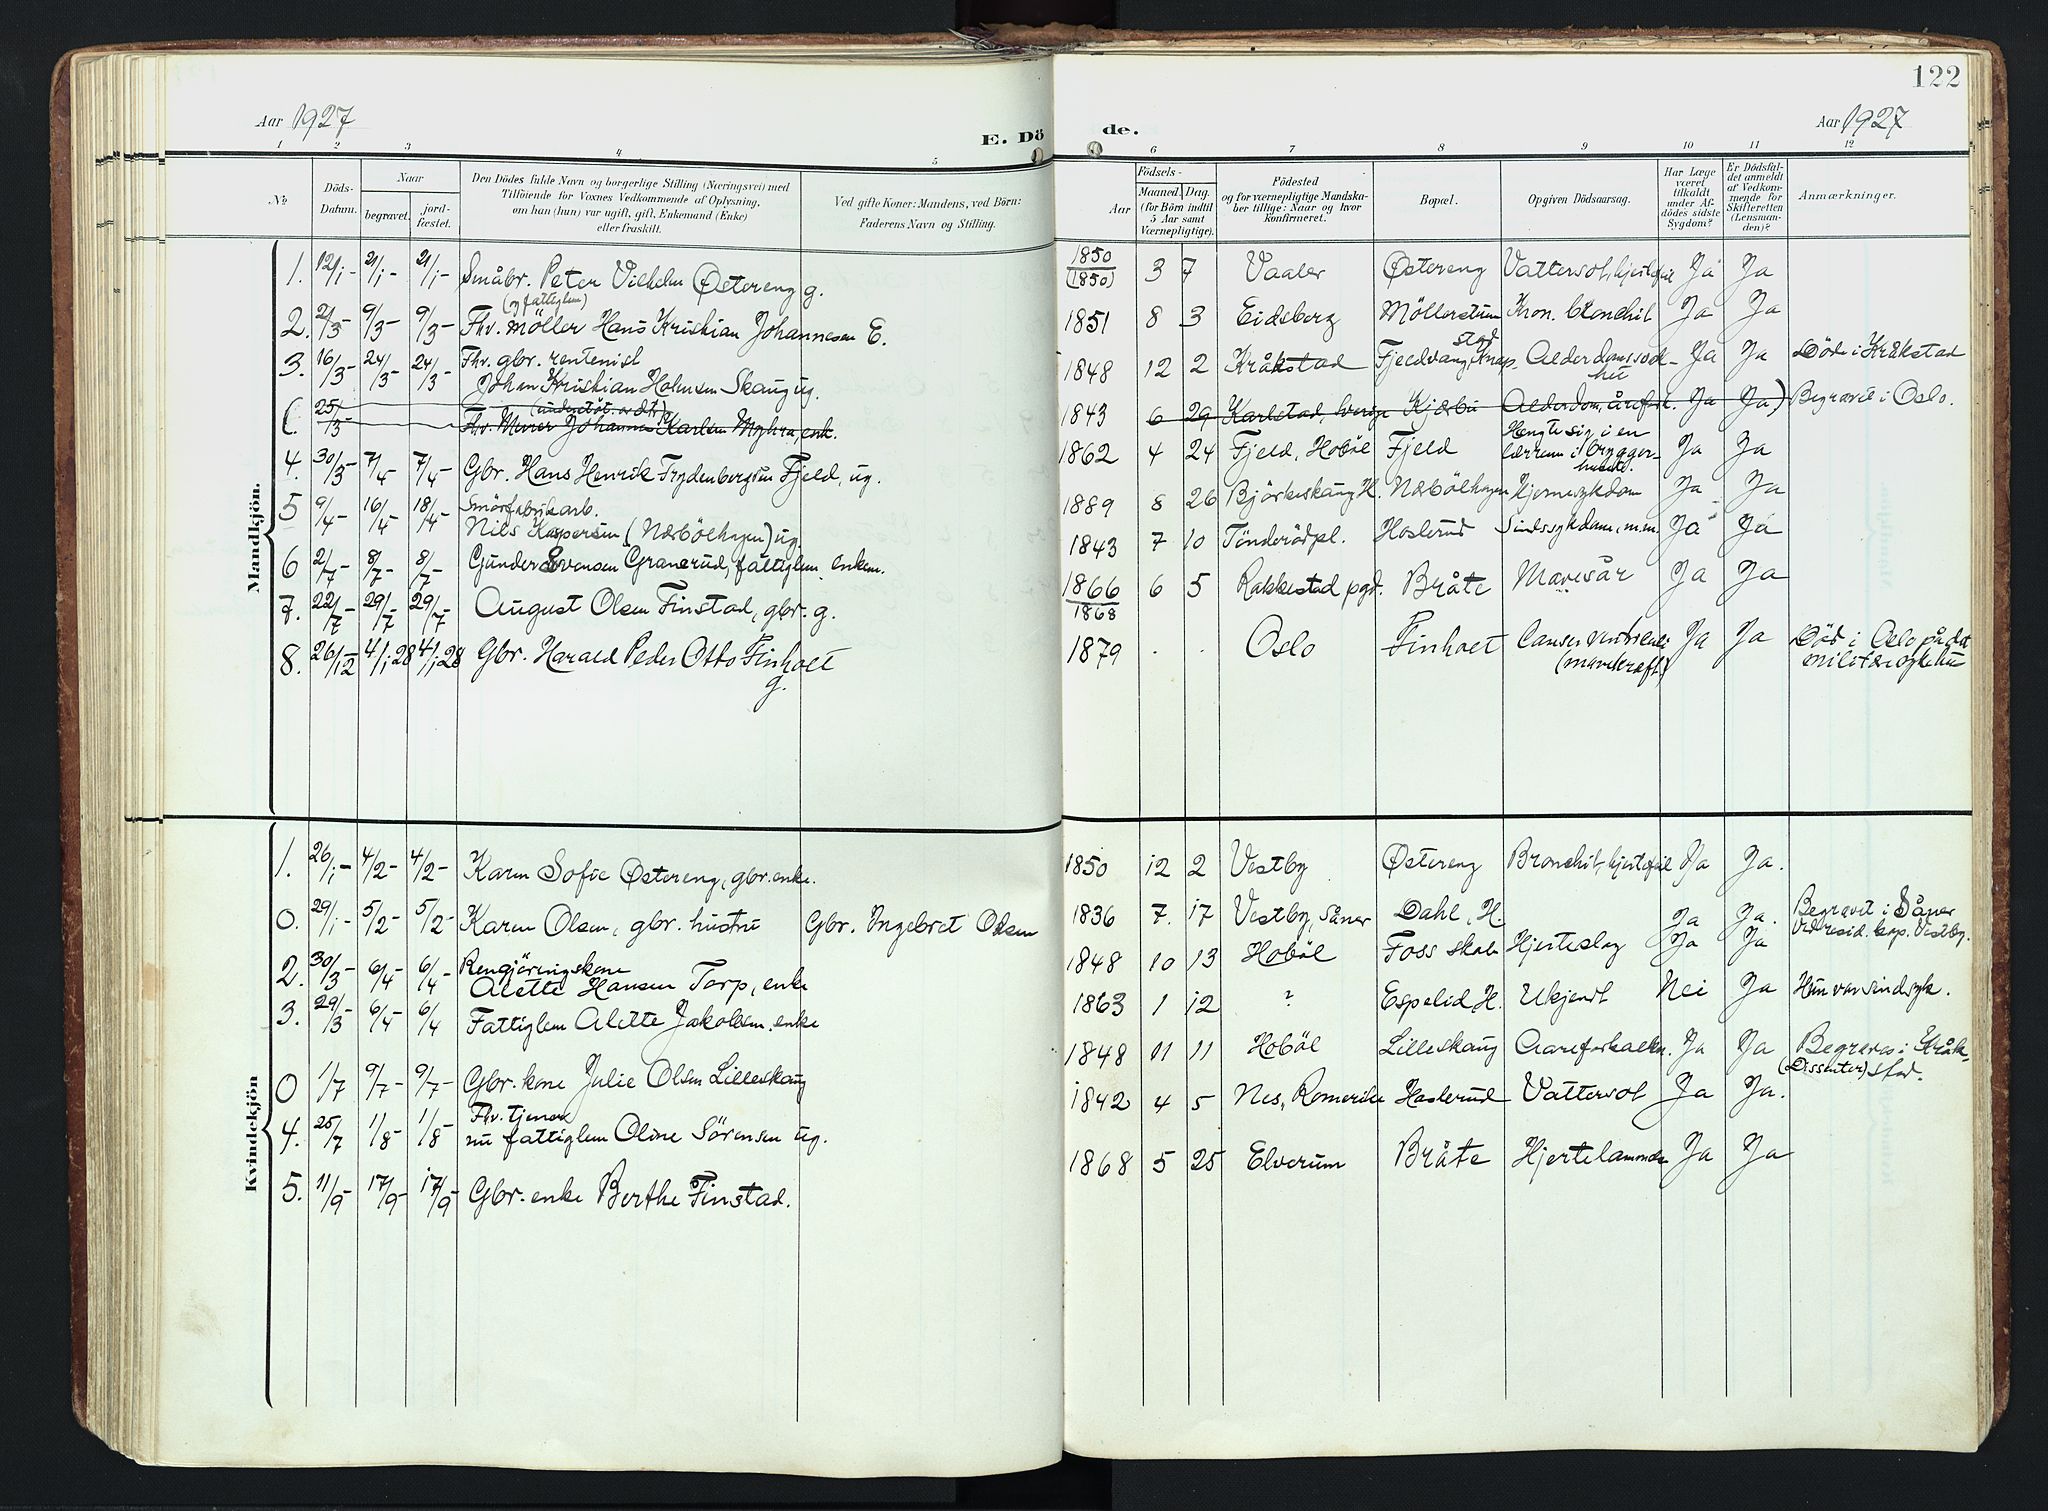 122
Aar 1927
E. Dö
de.
Aar 1927
1 2 3 4 5 6 7 8 9 10 11 12
No
Döds-
Datum.
Naar
begravet.
jord-
fæstet.
Den Dödes fulde Navn og borgerlige Stilling (Næringsvei) med
Tilföiende for Voxnes Vedkommende af Oplysning,
om han (hun) var ugift, gift, Enkemand (Enke)
eller fraskilt.
Ved gifte Koner: Mandens, ved Börn:
Faderens Navn og Stilling.
Födsels-
Aar
Maaned. Dag.
(for Börn indtil
5 Aar samt
Værnepligtige).
Födested
og for værnepligtige Mandska-
ber tillige: Naar og hvor
Konfirmeret.
Bopæl.
Opgiven Dödsaarsag.
Har Læge
været
tilkaldt
under Af-
dödes sidste
Sygdom?
Er Dödsfal-
det anmeldt
af Vedkom-
mende for
Skifteretten
(Lensman-
den)?
Anmærkninger.
Mandkjön.
1. 12/1- 21/1- 21/1- Småbr. Peter Vilhelm Østereng g. 1850 (1850) 3 7 Vaaler Østereng Vattersot, hjertefeil Ja Ja
(og fattiglem)
2. 2/3- 9/3- 9/3- Fhv. möller Hans Kristian Johannesen E. 1851 8 3 Eidsberg Möllerstum Kron. bronchit Ja Ja
3. 16/3- 24/3- 24/3- Fhv. gbr. rentenist
Johan Kristian Holmsen Skaug ug. 1848 12 2 Kråkstad Fjeldvang, Knap- stad Alderdomssvak- het Ja Ja Döde i Kråkstad
(understöt. av d.k.)
( 25/3 Fhv. Murer Johannes Karlsen Myhra, enk. 1843 6 29 Karlstad, Sverige Kjærbu Alderdom, årefork. Ja Ja) Begravet i Oslo.
4. 30/3- 7/4- 7/4- Gbr. Hans Henrik Frydenbergsen Fjeld, ug. 1862 4 24 Fjeld, Hobøl Fjeld Hengte sig i en
lærrem i brygger-
huset. Ja Ja
5 9/4- 16/4- 18/4- Smörfabrikarb.
Nils Kaspersen (Nærbölhagen) ug 1889 8 26 Björkeskaug H. Nærbölhagen Hjernesykdom Ja Ja
6 2/7- 8/7- 8/7- Gunder Evensen Granerud, fattiglem, enkem. 1843 7 10 Tönderödpl. Haslerud Sindssykdom, m.m. Ja Ja
7. 22/7- 29/7- 29/7- August Olsen Finstad, gbr. g. 1866 1868 6 5 Rakkestad pgd. Bråte Mavesår Ja Ja
8. 26/12 4/1 28 4/1 28 Gbr. Harald Peder Otto Finholt
g. 1879 . . Oslo Finholt Cancer ventriculi
(mavekræft) Ja Ja Död i Oslo på det
militære sykehus
Kvindekjön
1. 26/1- 4/2- 4/2- Karen Sofie Østereng, gbr. enke. 1850 12 2 Vestby Østereng Bronchit, hjertefeil Ja Ja.
0. 29/1- 5/2- 5/2- Karen Olsen, gbr. hustru Gbr. Ingebret Olsen 1836 7. 17 Vestby, Såner Dahl, H. Ja Ja. Begravet i Såner
ved resid. kap. Vestby.
2. 30/3- 6/4- 6/4- Rengjöringskone
Alette Hansen Torp, enke 1848 10 13 Hoböl Foss skole Hjerteslag Ja Ja
3. 29/3- 6/4- 6/4 Fattiglem Alette Jakobsen, enke 1863 1 12 ? Espelid H. Ukjendt Nei Ja Hun var sindsyk.
0 1/7 9/7- 9/7- Gbr. kone Julie Olsen Lilleskaug 1848 11 11 Hoböl Lilleskaug Aareforkalkn. Ja Ja Begraves i Kråk-
(Dissenter) stad.
4. 25/7 1/8- 1/8- Fhv. tjener
nu fattiglem Oline Sörensen ug. 1842 4 5 Nes, Romerike Haslerud Vattersot Ja Ja.
5. 11/9- 17/9- 17/9- Gbr. enke Berthe Finstad. 1868 5 25 Elverum Bråte Hjertelammelse Ja Ja